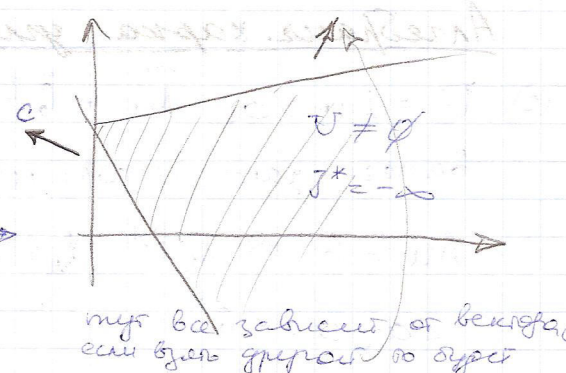 C
U ≠ ∅
J* = -∞
тут все зависит от вектора,
если взять другой то будет